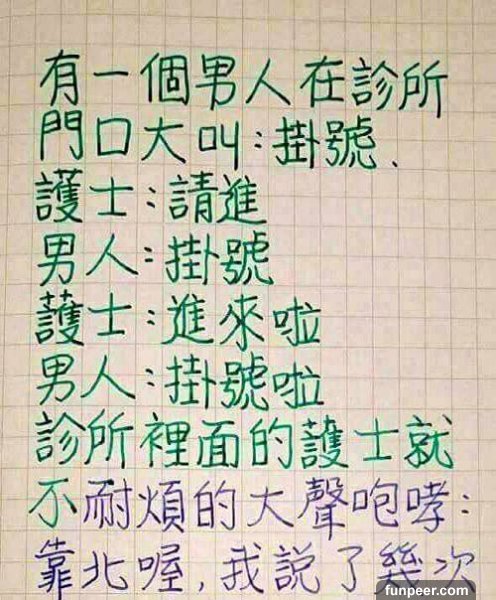 有一個男人在診所
門口大叫:掛號.
護士:請進
男人:掛號
護士:進來啦
男人:掛號啦
診所裡面的護士就
不耐煩的大聲咆哮:
靠北喔,我說了幾次
funpeer.com